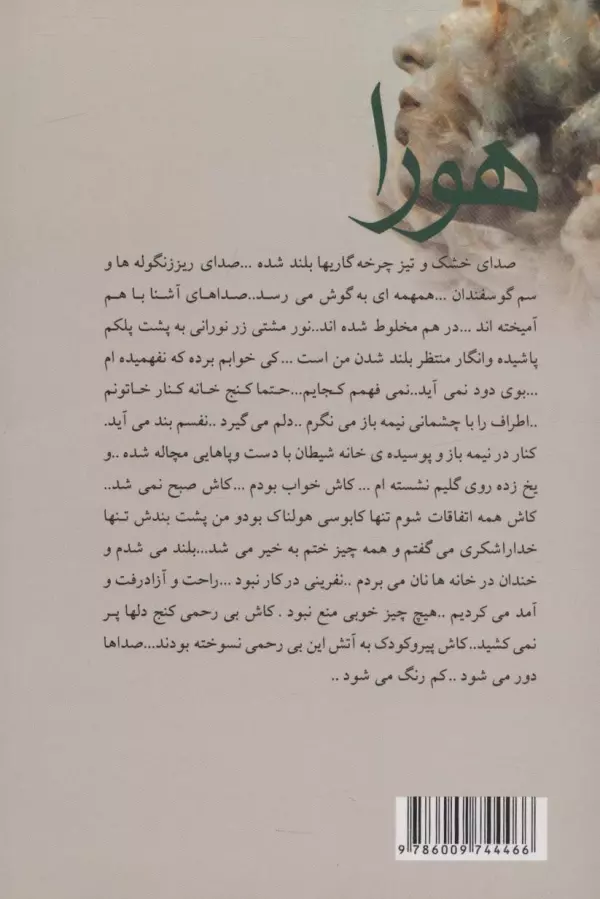 هورا
صدای خشک و تیز چرخه گاریها بلند شده ...صدای ریززنگوله ها و
سم گوسفندان ...همهمه ای به گوش می رسد..صداهای آشنا با هم
آمیخته اند ...در هم مخلوط شده اند..نور مشتی زر نورانی به پشت پلکم
پاشیده وانگار منتظر بلند شدن من است ...کی خوابم برده که نفهمیده ام
...بوی دود نمی آید..نمی فهمم کجایم...حتما کنج خانه کنار خاتونم
..اطراف را با چشمانی نیمه باز می نگرم ..دلم می گیرد ..نفسم بند می آید.
کنار در نیمه باز و پوسیده ی خانه شیطان با دست وپاهایی مچاله شده ..و
یخ زده روی گلیم نشسته ام ...کاش خواب بودم ...کاش صبح نمی شد..
کاش همه اتفاقات شوم تنها کابوسی هولناک بودو من پشت بندش تنها
خداراشکری می گفتم و همه چیز ختم به خیر می شد...بلند می شدم و
خندان در خانه ها نان می بردم ..نفرینی درکار نبود ...راحت و آزادرفت و
آمد می کردیم ..هیچ چیز خوبی منع نبود . کاش بی رحمی کنج دلها پر
نمی کشید..کاش پیروکودک به آتش این بی رحمی نسوخته بودند...صداها
دور می شود ..کم رنگ می شود ..
9 786009 744466